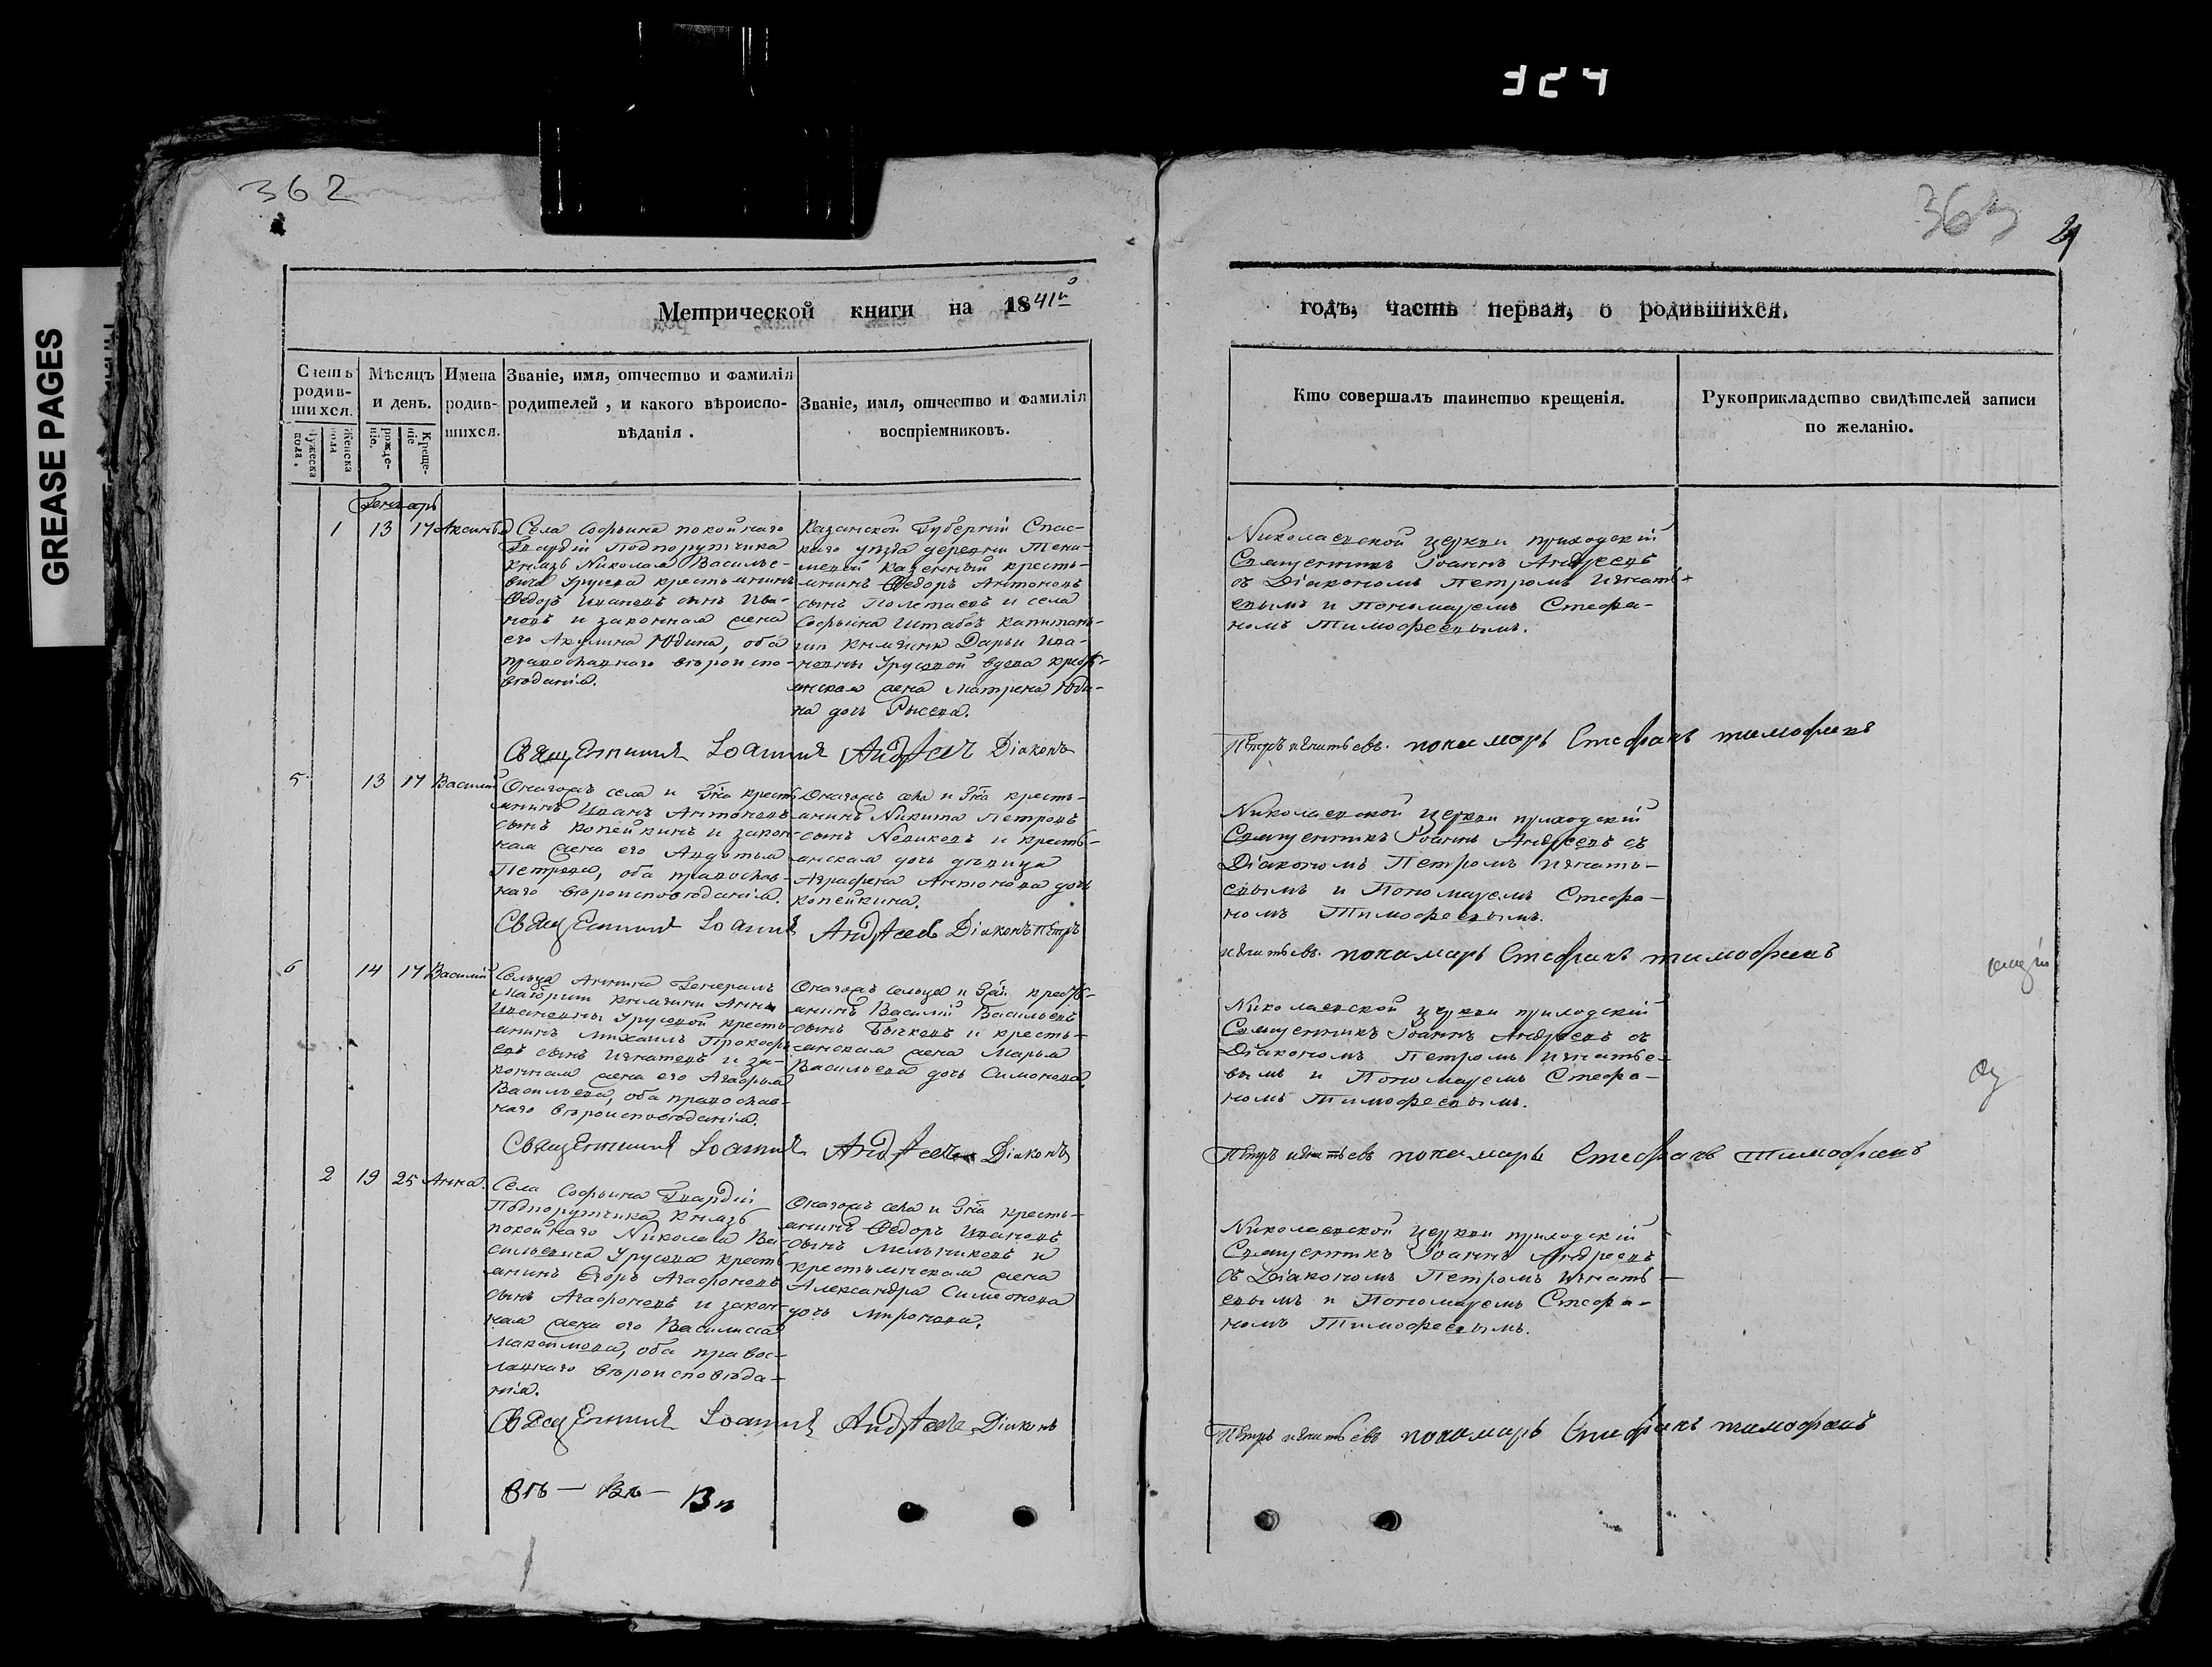 324
362
363
GREASE PAGES
Метрической книги на 1841го
годъ, часть первая, о родившихся.
Счетъ родив-шихся.
Мужеска пола.
Женска пола
Мѣсяцъ и день.
рожде-ніе.
Креще-ніе
Имена родив-шихся.
Званіе, имя, отчество и фамилія
родителей, и какого вѣроиспо-
вѣданія.
Званіе, имя, отчество и фамилія
воспріемниковъ.
Кто совершалъ таинство крещенія.
Рукоприкладство свидѣтелей записи
по желанію.
Генварь
1 13 17 Аксинья
Села Софьина покойнаго
Гвардіи Подпорутчика
Князь Николая Василье-
вича Урусова крестьянинъ
Ѳедоръ Ивановъ сынъ Ива-
новъ и законная жена
его Акулина Юдина, оба
православнаго вѣроиспо-
вѣданія.
Казанской Губерніи Спас-
каго уѣзда деревни
казенный кресть-
янинъ Ѳедоръ Антоновъ
сынъ Полетаевъ и села
Софьина Штабсъ капитан-
ши княгини Дарьи Ива-
новны Урусовой вдова кресть-
янская жена Матрена Юди-
на дочь Рысева.
Николаевской церкви приходскій
Священникъ Іоаннъ Андреевъ
съ Діакономъ Петромъ Игнать-
евымъ и Пономаремъ Стефа-
номъ Тимофеевымъ.
Священникъ Іоаннъ Андреевъ Діаконъ
Петръ Игнатьевъ. пономарь Стефанъ тимофеевъ
5 13 17 Василій
Онагожъ села и Гна кресть-
янинъ Иванъ Антоновъ
сынъ Копейкинъ и закон-
ная жена его Авдотья
Петрова, оба православ-
наго вѣроисповѣданія.
Онагожъ села и Гна кресть-
янинъ Никита Петровъ
сынъ Новиковъ и кресть-
янская дочь дѣвица
Аграфена Антонова дочь
Копейкина.
Николаевской церкви приходскій
Священникъ Іоаннъ Андреевъ съ
Діакономъ Петромъ Игнать-
евымъ и Пономаремъ Стефа-
номъ Тимофеевымъ.
Священникъ Іоаннъ Андреевъ Діаконъ Петръ
Игнатьевъ. пономарь Стефанъ тимофеевъ
6 14 17 Василій
Сельца Аннина Генералъ
Маіорши Княгини Анны
Ивановны Урусовой кресть-
янинъ Михаилъ Прокофь-
евъ сынъ Игнатовъ и за-
конная жена его Агафья
Васильева, оба православ-
наго вѣроисповѣданія.
Онагожъ сельца и Гжи кресть-
янинъ Василій Васильевъ
сынъ Бычковъ и кресть-
янская жена Марья
Васильева дочь Симонова.
Николаевской церкви приходскій
Священникъ Іоаннъ Андреевъ съ
Діакономъ Петромъ Игнатье-
вымъ и Пономаремъ Стефа-
номъ Тимофеевымъ.
Священникъ Іоаннъ Андреевъ Діаконъ
Петръ Игнатьевъ пономарь Стефанъ Тимофеевъ
2 19 25 Анна.
Села Софьина Гвардіи
Подпорутчика Князь
покойнаго Николая Ва-
сильевича Урусова кресть-
янинъ Егоръ Агафоновъ
сынъ Агафоновъ и закон-
ная жена его Василиса
Максимова, оба правос-
лавнаго вѣроисповѣда-
нія.
Онагожъ села и Гна кресть-
янинъ Ѳедоръ Ивановъ
сынъ Мельниковъ и
крестьянская жена
Александра Симеонова
дочь Миронова.
Николаевской церкви приходскій
Священникъ Іоаннъ Андреевъ
съ Діакономъ Петромъ Игнать-
евымъ и Пономаремъ Стефа-
номъ Тимофеевымъ.
Священникъ Іоаннъ Андреевъ Діаконъ
Петръ Игнатьевъ пономарь Стефанъ тимофеевъ